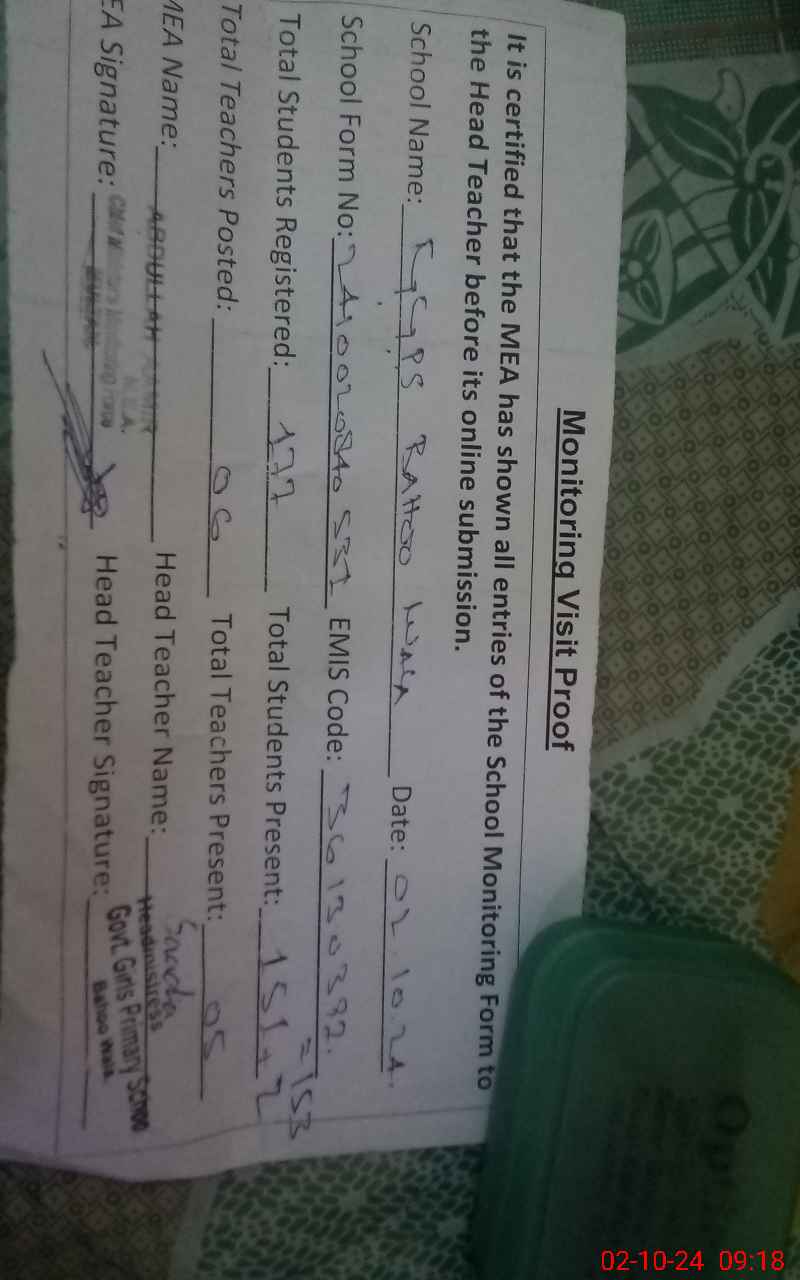 Monitoring Visit Proof
It is certified that the MEA has shown all entries of the School Monitoring Form to
the Head Teacher before its online submission.
School Name: GGPS RAHOO WALA Date: 02.10.24.
School Form No: 2410020840531 EMIS Code: 36130392.
Total Students Registered: 177 Total Students Present: 151+2 =153
Total Teachers Posted: 06 Total Teachers Present: 05
MEA Name: ABDULLAH Head Teacher Name: Saeeda
M.E.A.
Headmistress
EA Signature: Head Teacher Signature:
Chief Minister's Monitoring Force
Govt. Girls Primary School
02-10-24 09:18